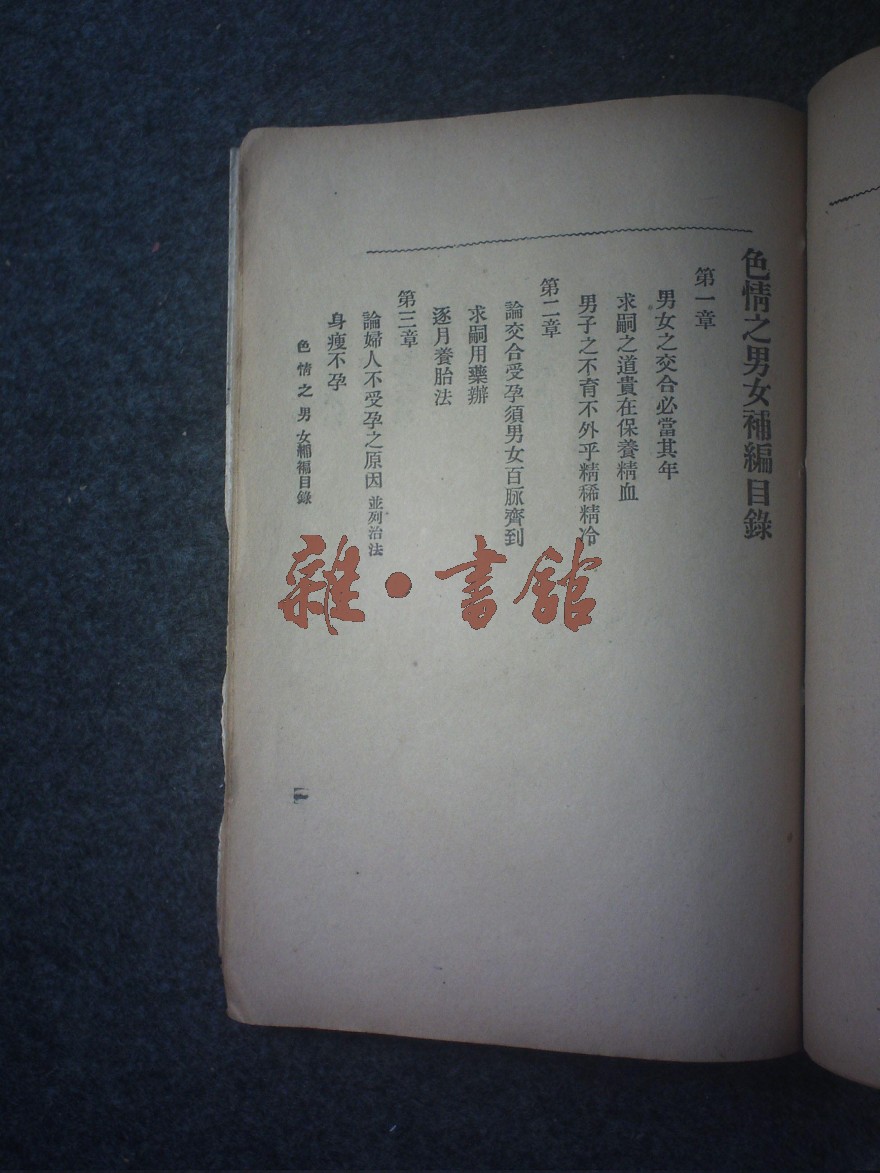 色情之男女補編目錄
第一章
男女之交合必當其年
求嗣之道貴在保養精血
男子之不育不外乎精稀精冷
第二章
論交合受孕須男女百脈齊到
求嗣用藥辦
逐月養胎法
第三章
論婦人不受孕之原因 並列治法
身瘦不孕
色情之男女補編目錄
一
雜·書館